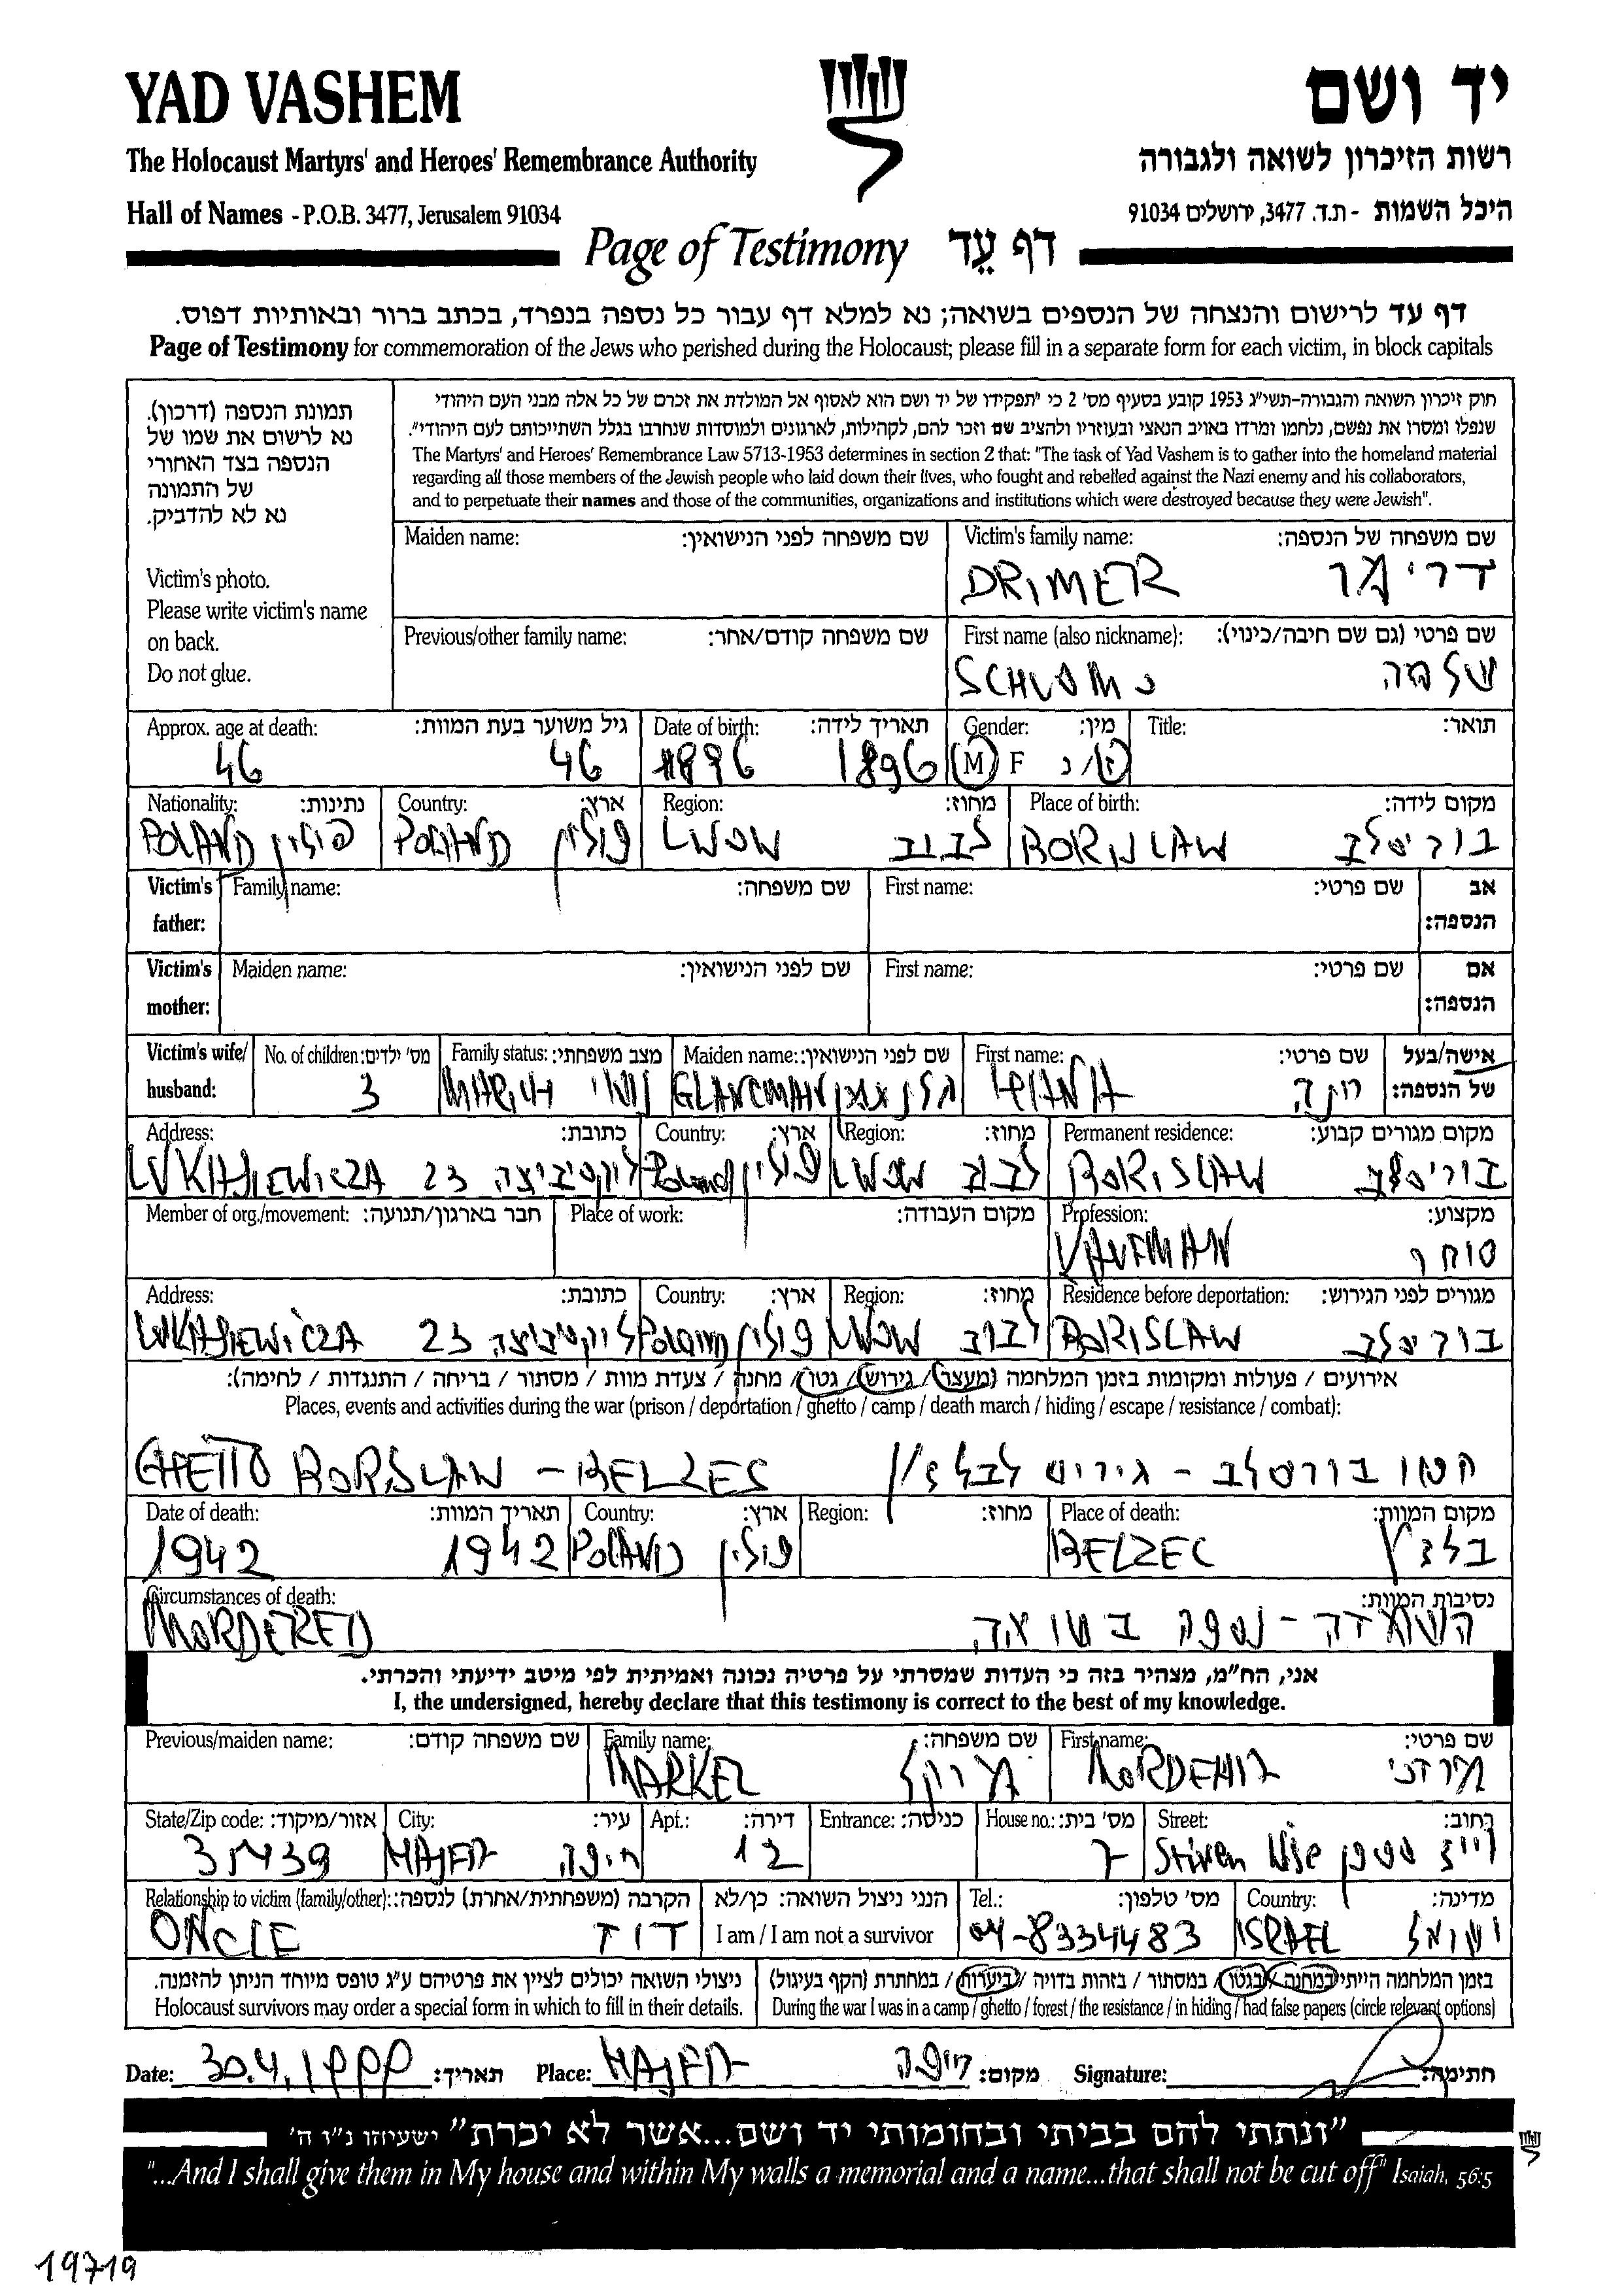 YAD VASHEM
יד ושם
The Holocaust Martyrs' and Heroes' Remembrance Authority
רשות הזיכרון לשואה ולגבורה
Hall of Names - P.O.B. 3477, Jerusalem 91034
היכל השמות - ת.ד. 3477, ירושלים 91034
Page of Testimony דף עֵד
דף עד לרישום והנצחה של הנספים בשואה; נא למלא דף עבור כל נספה בנפרד, בכתב ברור ובאותיות דפוס.
Page of Testimony for commemoration of the Jews who perished during the Holocaust; please fill in a separate form for each victim, in block capitals
תמונת הנספה (דרכון).
נא לרשום את שמו של
הנספה בצד האחורי
של התמונה
נא לא להדביק.
Victim's photo.
Please write victim's name
on back.
Do not glue.
חוק זיכרון השואה והגבורה-תשי"ג 1953 קובע בסעיף מס' 2 כי "תפקידו של יד ושם הוא לאסוף אל המולדת את זכרם של כל אלה מבני העם היהודי
שנפלו ומסרו את נפשם, נלחמו ומרדו באויב הנאצי ובעוזריו ולהציב שם וזכר להם, לקהילות, לארגונים ולמוסדות שנחרבו בגלל השתייכותם לעם היהודי".
The Martyrs' and Heroes' Remembrance Law 5713-1953 determines in section 2 that: "The task of Yad Vashem is to gather into the homeland material
regarding all those members of the Jewish people who laid down their lives, who fought and rebelled against the Nazi enemy and his collaborators,
and to perpetuate their names and those of the communities, organizations and institutions which were destroyed because they were Jewish".
Maiden name: שם משפחה לפני הנישואין: Victim's family name: שם משפחה של הנספה:
DRIMER דרימר
Previous/other family name: שם משפחה קודם/אחר: First name (also nickname): שם פרטי (גם שם חיבה/כינוי):
שלמה
Approx. age at death: גיל משוער בעת המוות: Date of birth: תאריך לידה: Gender: מין: Title: תואר:
46 46 1896 1896 M F ז/נ
Nationality: נתינות: Country: ארץ: Region: מחוז: Place of birth: מקום לידה:
POLAND פולין POLAND פולין LWOW לבוב BORISLAW בוריסלב
Victim's father: Family name: שם משפחה: First name: שם פרטי: אב הנספה:
Victim's mother: Maiden name: שם לפני הנישואין: First name: שם פרטי: אם הנספה:
Victim's wife/ husband: No. of children: מס' ילדים: Family status: מצב משפחתי: Maiden name: שם לפני הנישואין: First name: שם פרטי: אישה/בעל של הנספה:
3 נשוי גלנצמן
Address: כתובת: Country: ארץ: Region: מחוז: Permanent residence: מקום מגורים קבוע:
23 Poland פולין LWOW לבוב BORISLAW בוריסלב
Member of org./movement: חבר בארגון/תנועה: Place of work: מקום העבודה: Profession: מקצוע:
KAUFMAN סוחר
Address: כתובת: Country: ארץ: Region: מחוז: Residence before deportation: מגורים לפני הגירוש:
23 פולין LWOW לבוב BORISLAW בוריסלב
אירועים / פעולות ומקומות בזמן המלחמה (מעצר / גירוש / גטו / מחנה / צעדת מוות / מסתור / בריחה / התנגדות / לחימה):
Places, events and activities during the war (prison / deportation / ghetto / camp / death march / hiding / escape / resistance / combat):
GHETTO BORISLAW - BELZES גטו בורסלב - גירוש לבלז'ץ
Date of death: תאריך המוות: Country: ארץ: Region: מחוז: Place of death: מקום המוות:
1942 1942 POLAND פולין BELZEC בלז'ץ
Circumstances of death: נסיבות המוות:
MORDERED השמדה - נספה בשואה
אני, הח"מ, מצהיר בזה כי העדות שמסרתי על פרטיה נכונה ואמיתית לפי מיטב ידיעתי והכרתי.
I, the undersigned, hereby declare that this testimony is correct to the best of my knowledge.
Previous/maiden name: שם משפחה קודם: Family name: שם משפחה: First name: שם פרטי:
MARKEL מרקל מרדכי
State/Zip code: אזור/מיקוד: City: עיר: Apt.: דירה: Entrance: כניסה: House no.: מס' בית: Street: רחוב:
HAJFA חיפה 12 7 Stiven Wise וייז סטפן
Relationship to victim (family/other): הקרבה (משפחתית/אחרת) לנספה: הנני ניצול השואה: כן/לא Tel.: מס' טלפון: Country: מדינה:
ONCLE דוד I am / I am not a survivor 04-8334483 ISRAEL ישראל
ניצולי השואה יכולים לציין את פרטיהם ע"ג טופס מיוחד הניתן להזמנה. בזמן המלחמה הייתי במחנה / בגטו / במסתור / בזהות בדויה / ביערות / במחתרת (הקף בעיגול)
Holocaust survivors may order a special form in which to fill in their details. During the war I was in a camp / ghetto / forest / the resistance / in hiding / had false papers (circle relevant options)
Date: 30.4.1999 תאריך: Place: HAJFA חיפה מקום: Signature: חתימה:
"ונתתי להם בביתי ובחומותי יד ושם...אשר לא יכרת" ישעיהו נ"ו ה'
"...And I shall give them in My house and within My walls a memorial and a name...that shall not be cut off" Isaiah, 56:5
19719